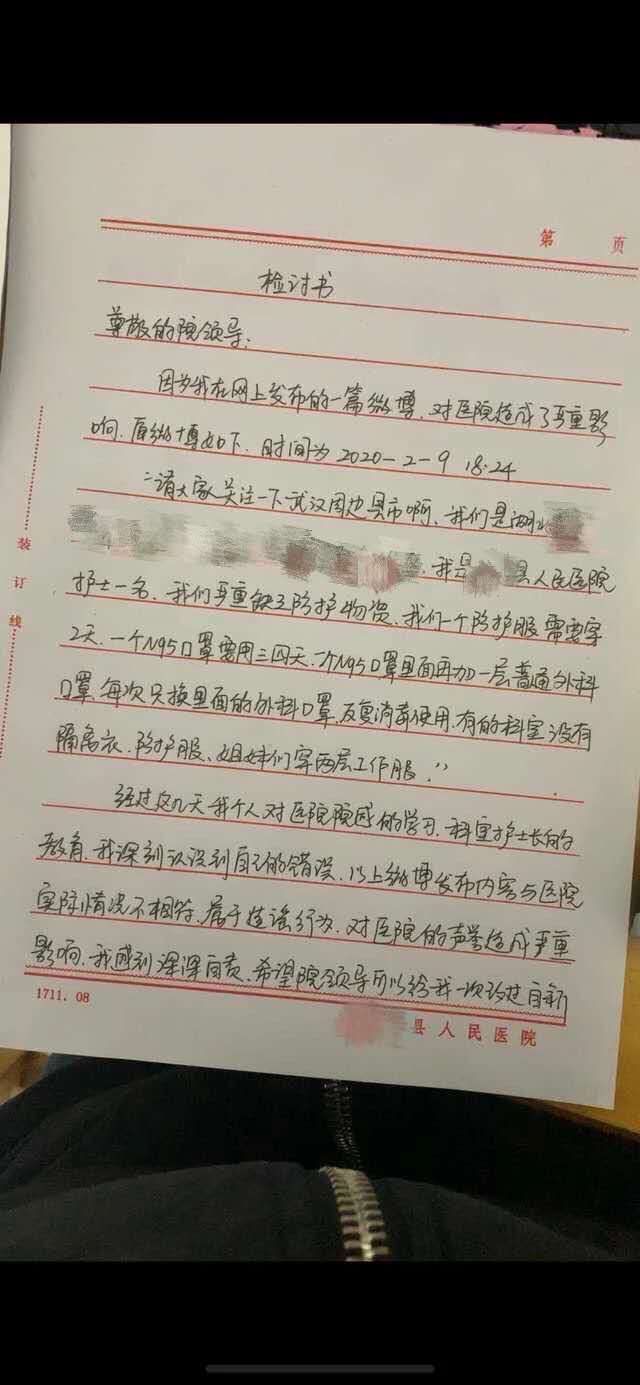 第 页
检讨书
尊敬的院领导:
因为我在网上发布的一篇微博，对医院造成了严重影
响，原微博如下，时间为2020-2-9 18:24
“请大家关注一下武汉周边县市啊，我们是湖北
我是 县人民医院
护士一名，我们严重缺乏防护物资，我们一个防护服需要穿
2天，一个N95口罩要用三四天，一个N95口罩里面再加一层普通外科
口罩，每次只换里面的外科口罩，反复消毒使用，有的科室没有
隔离衣、防护服、姐妹们穿两层工作服，”
经过这几天我个人对医院院感的学习，科室护士长的
教育，我深刻认识到自己的错误，以上微博发布内容与医院
实际情况不相符，属于造谣行为，对医院的声誉造成严重
影响，我感到深深自责，希望院领导可以给我一次改过自新
装订线
1711.08
县人民医院